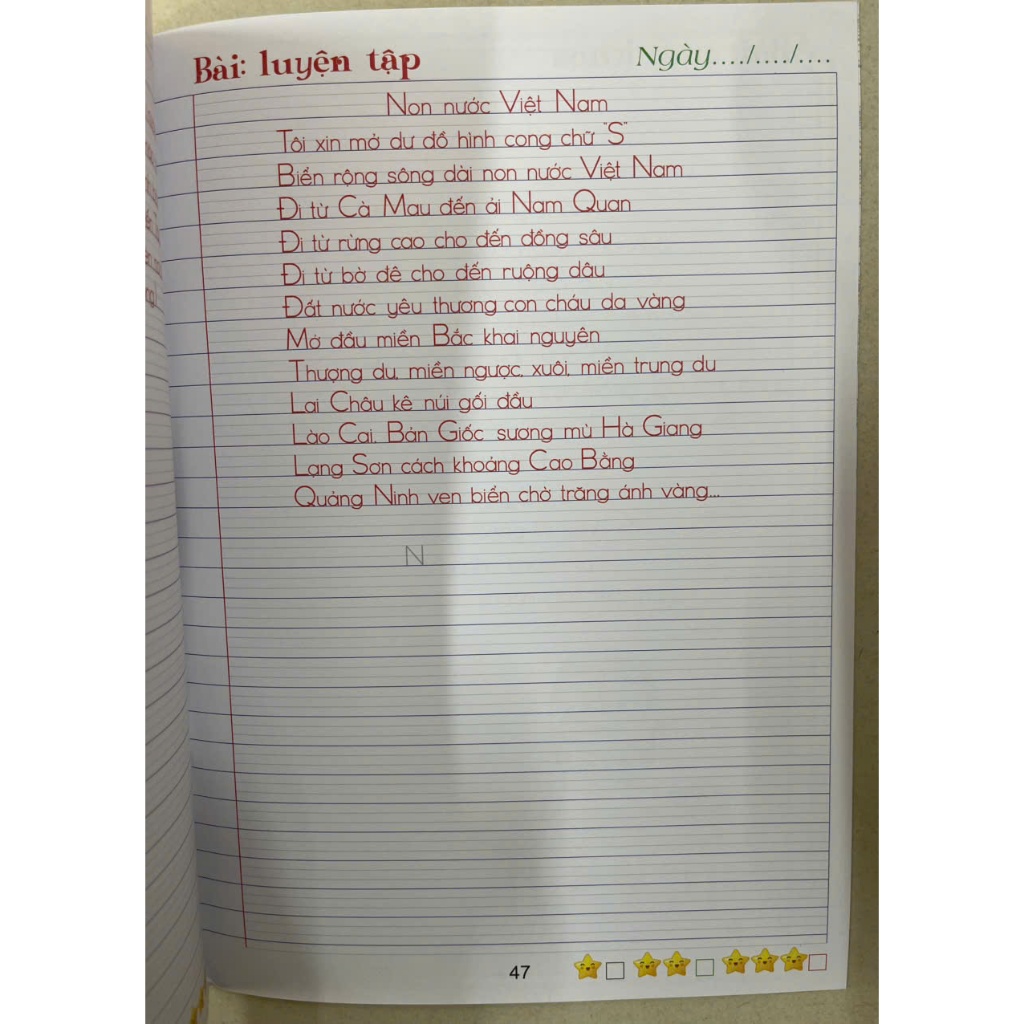 Bài: luyện tập
Ngày..../..../....
Non nước Việt Nam
Tôi xin mở dư đồ hình cong chữ "S"
Biển rộng sông dài non nước Việt Nam
Đi từ Cà Mau đến ải Nam Quan
Đi từ rừng cao cho đến đồng sâu
Đi từ bờ đê cho đến ruộng dâu
Đất nước yêu thương con cháu da vàng
Mở đầu miền Bắc khai nguyên
Thượng du, miền ngược, xuôi, miền trung du
Lai Châu kê núi gối đầu
Lào Cai, Bản Giốc sương mù Hà Giang
Lạng Sơn cách khoảng Cao Bằng
Quảng Ninh ven biển chờ trăng ánh vàng...
N
47